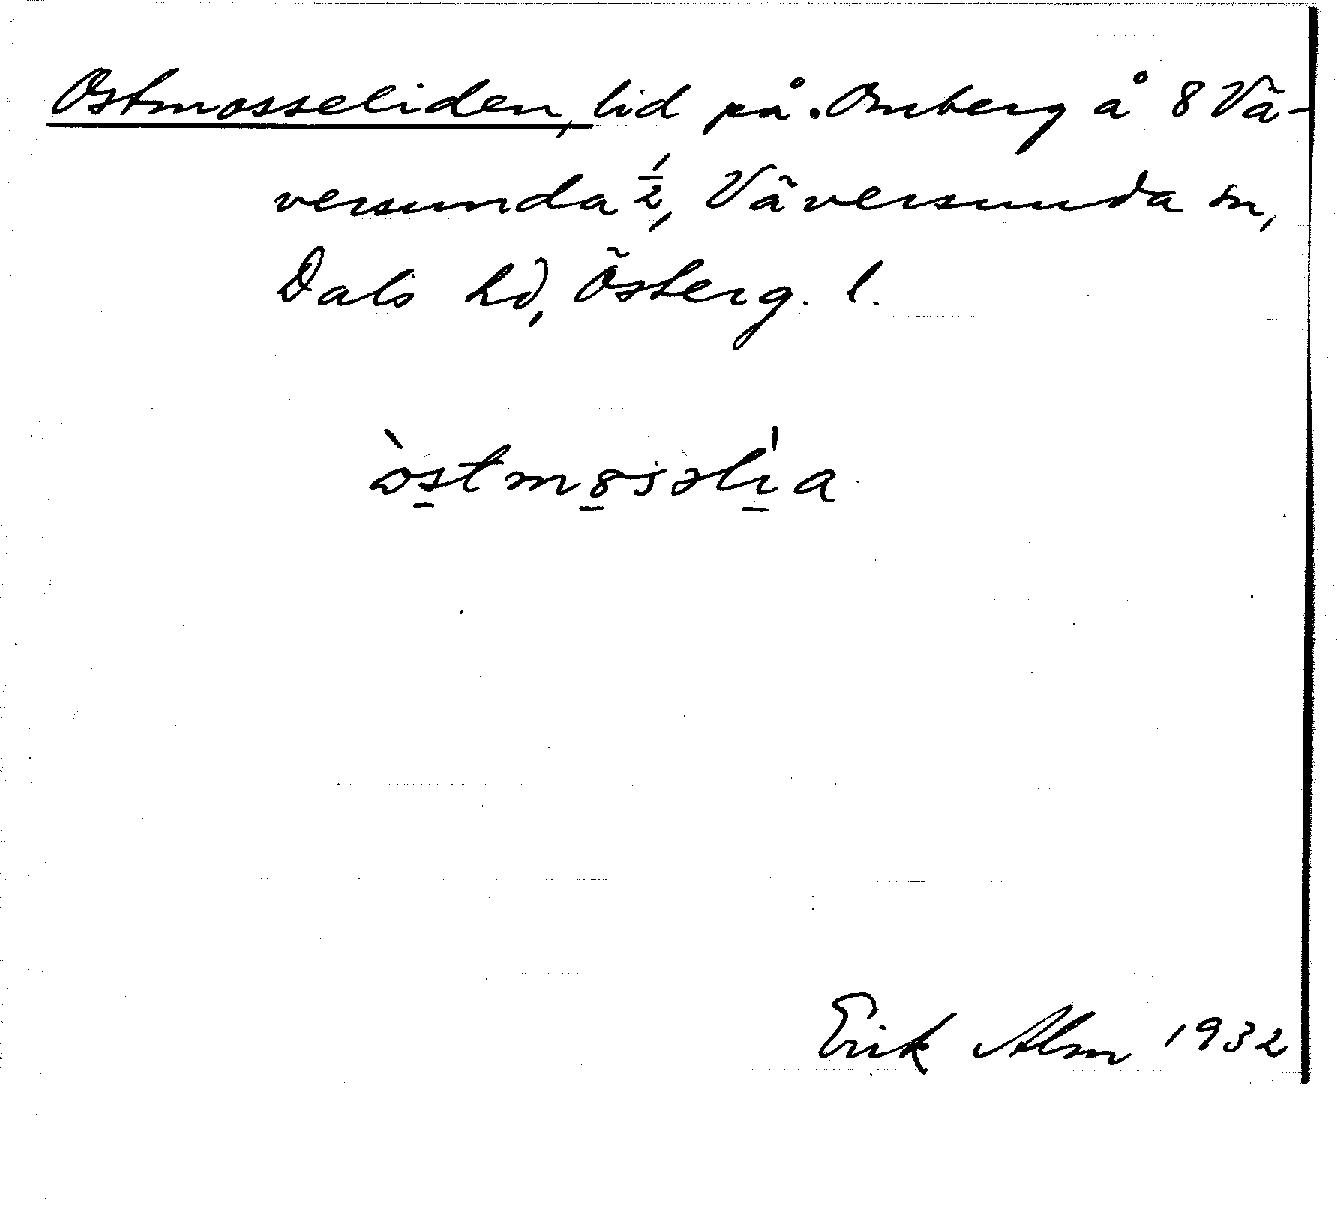 Ostmosseliden, lid på Omberg å 8 Vä-
versunda ½, Väversunda sn,
Dals hd, Österg. l.
òstm8səlia
Erik Alm 1932